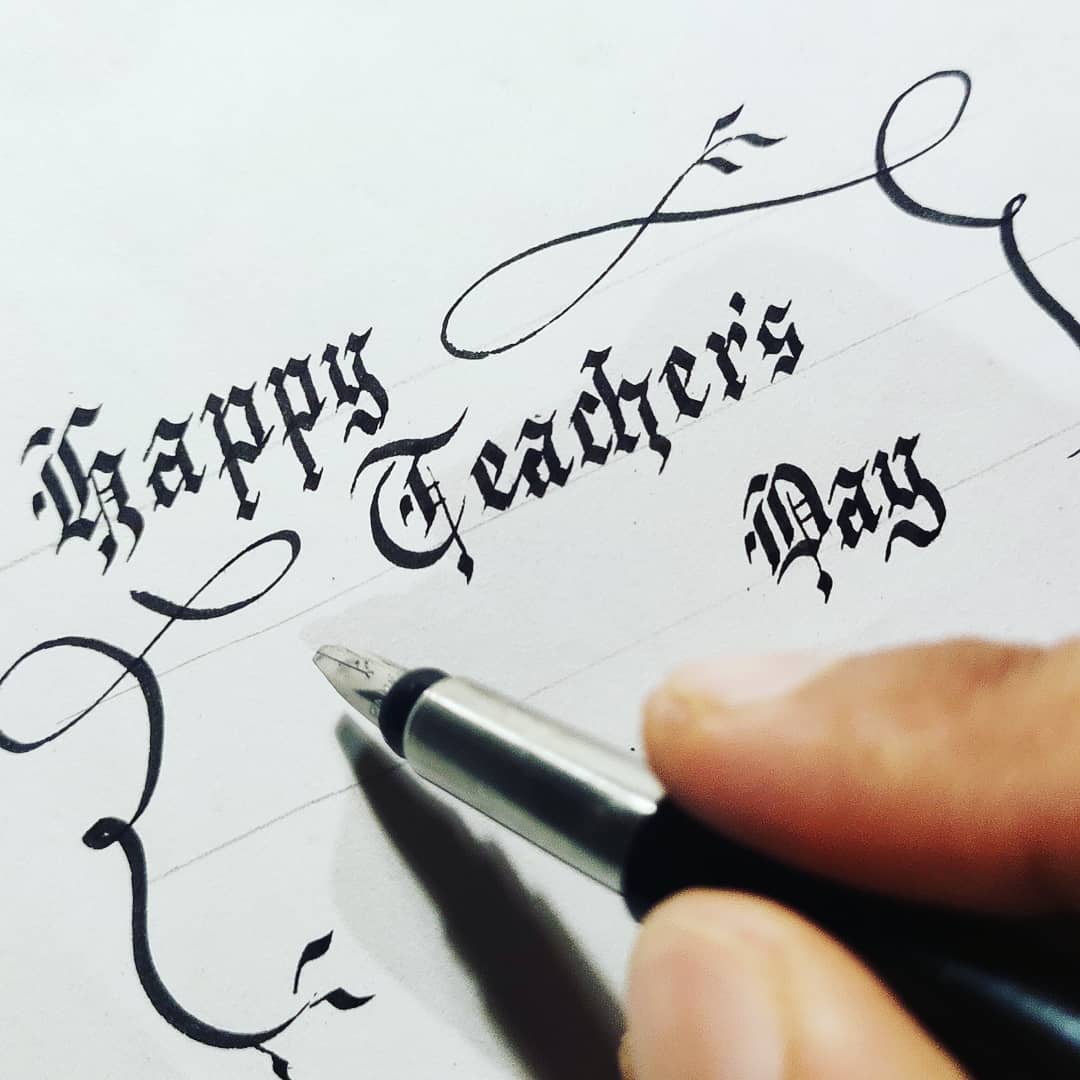 Happy
Teacher's
Day